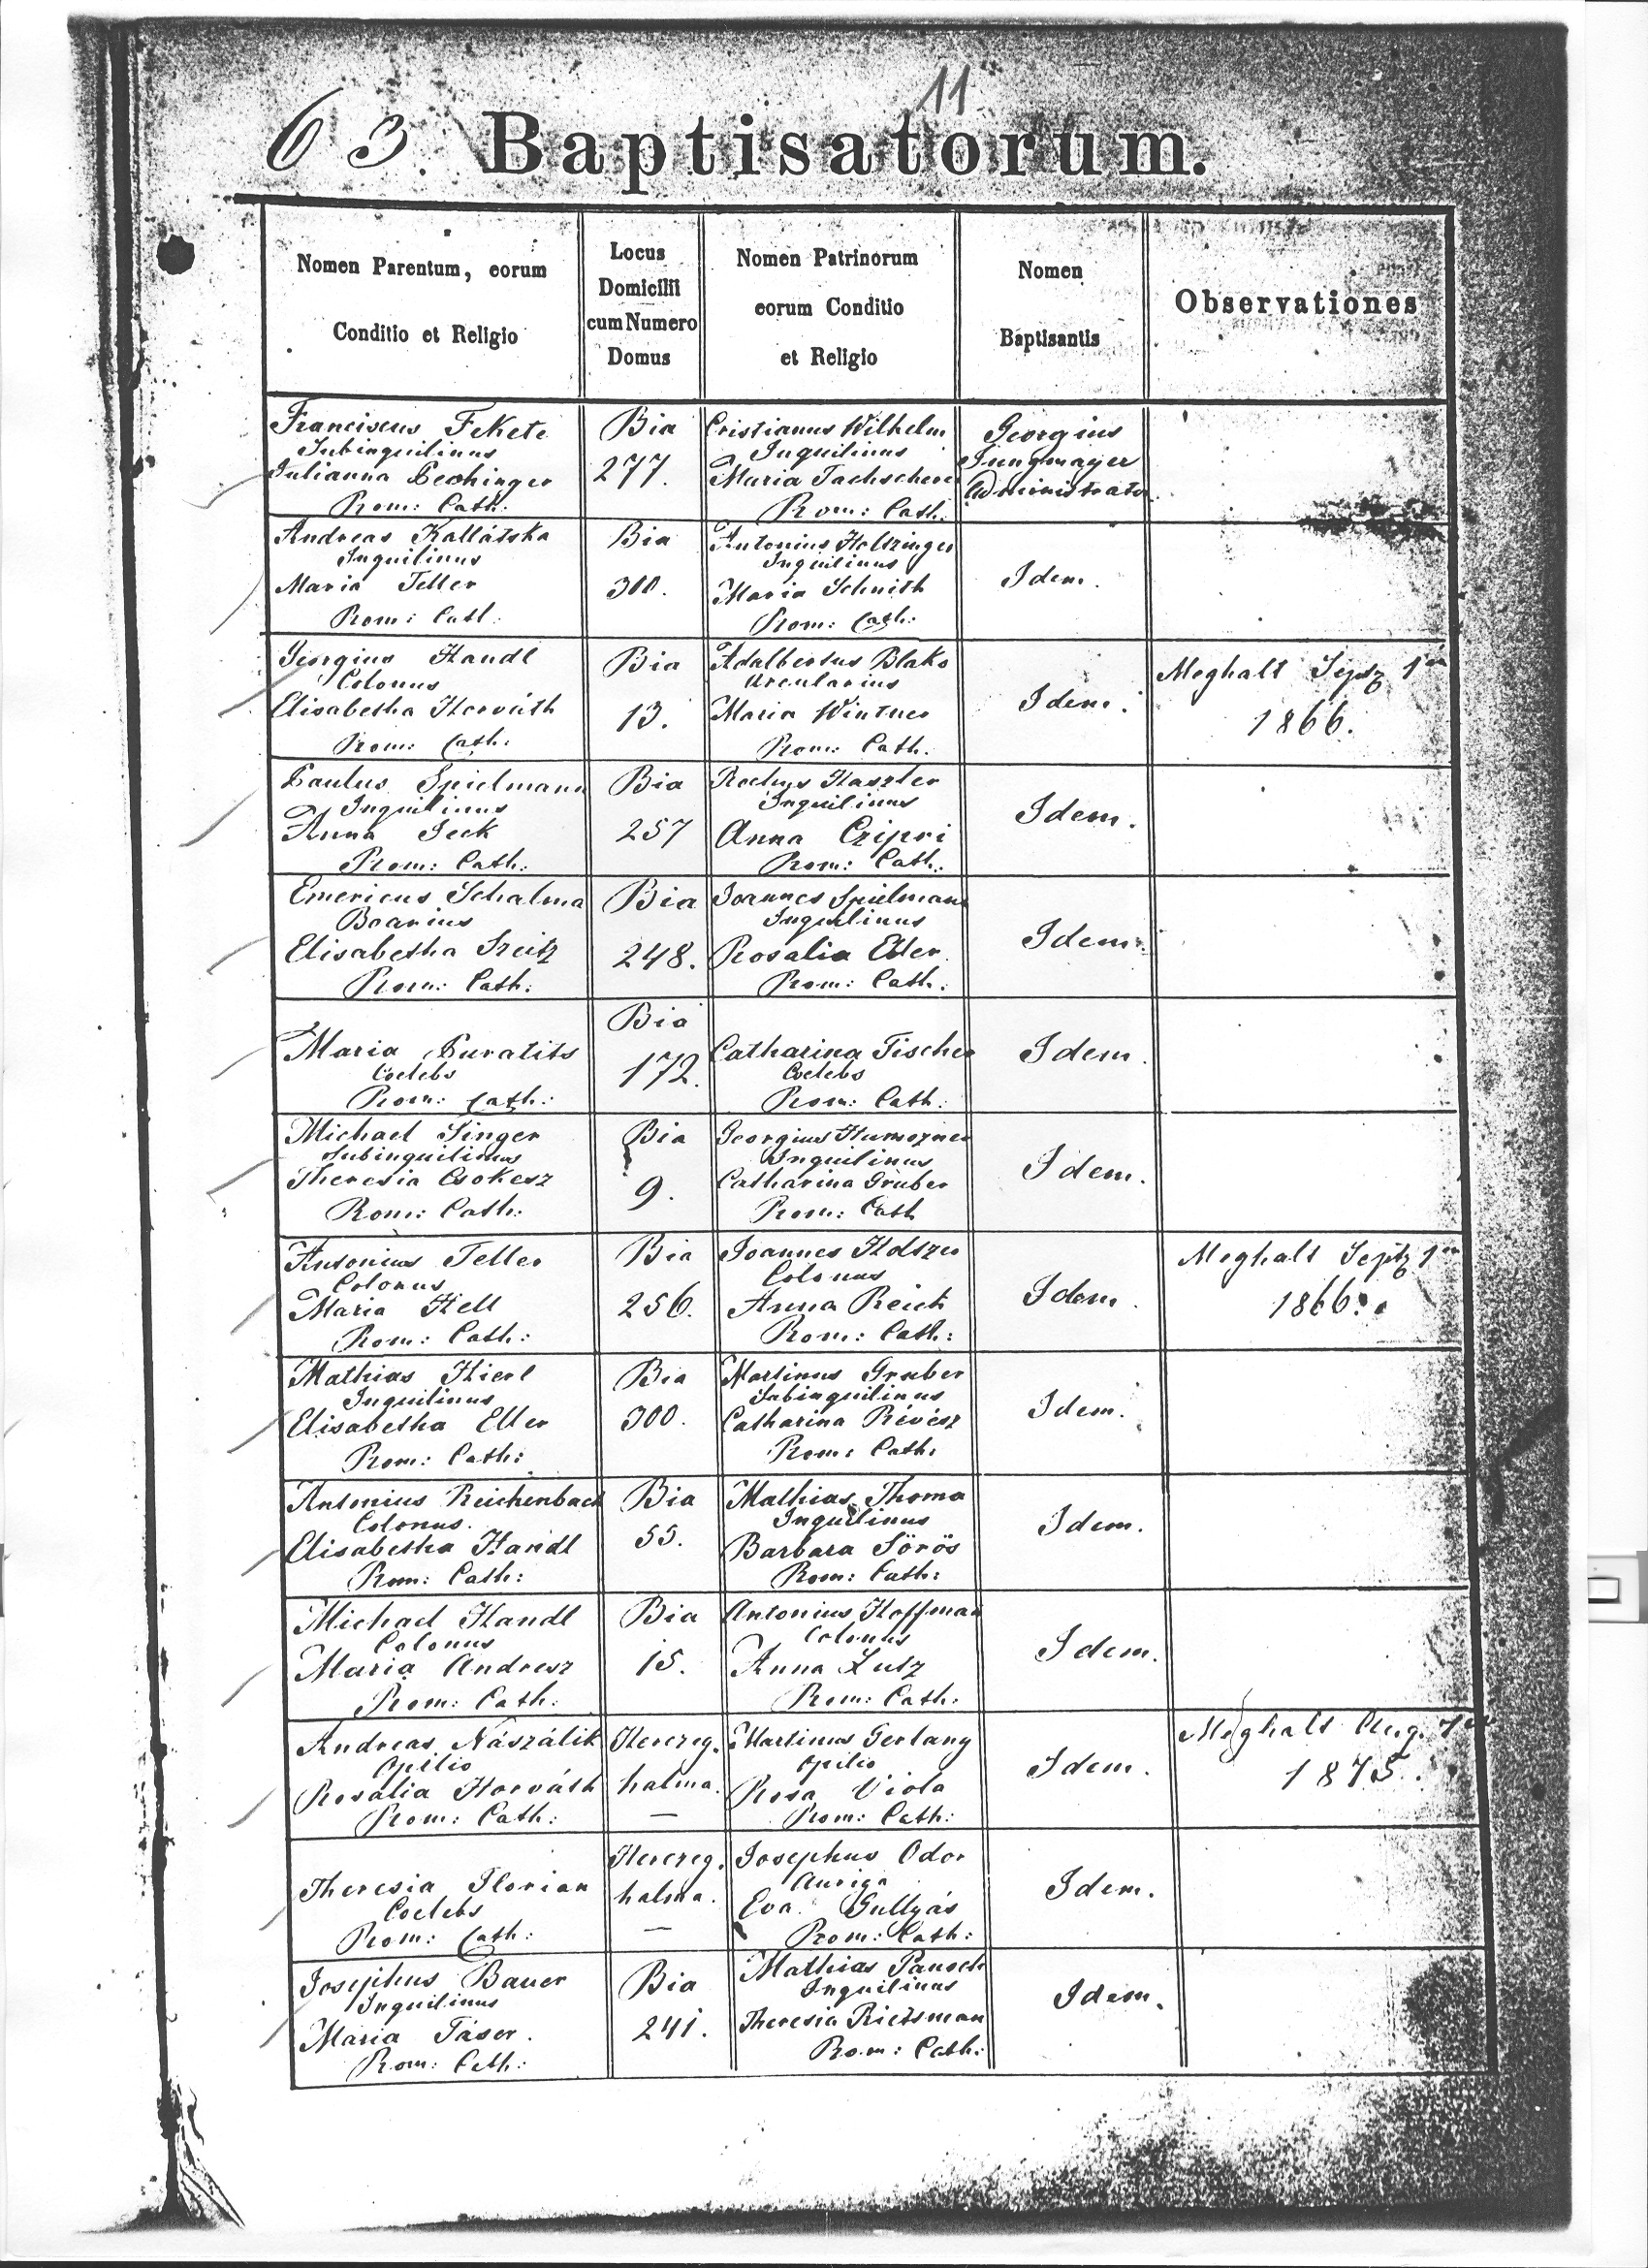 11
63. Baptisatorum.
Nomen Parentum, eorum
Conditio et Religio
Locus
Domicilii
cum Numero
Domus
Nomen Patrinorum
eorum Conditio
et Religio
Nomen
Baptisantis
Observationes
Franciscus Fekete
Subinquilinus
Julianna
Rom: Cath:
Bia
277.
Cristianus Wilhelm
Inquilinus
Maria
Rom: Cath.
Georgius
Jungmayer
Administrator
Andreas Kallátska
Inquilinus
Maria Teller
Rom: Cath.
Bia
300.
Antonius Holtzinger
Inquilinus
Maria Schmith
Rom: Cath:
Idem.
Georgius Handl
Colonus
Elisabetha Horváth
Rom: Cath:
Bia
13.
Adalbertus Blako
Arcularius
Maria Wintner
Rom: Cath.
Idem.
Meghalt Septz 1én
1866.
Paulus Spielmann
Inquilinus
Anna Seck
Rom: Cath:
Bia
257
Rochus Haszler
Inquilinus
Anna Czipri
Rom: Cath.
Idem.
Emericus Schalma
Boarius
Elisabetha Szeitz
Rom: Cath:
Bia
248.
Joannes Spielmann
Inquilinus
Rosalia Eller.
Rom: Cath:
Idem.
Maria Puratits
Coelebs
Rom: Cath:
Bia
172.
Catharina Fischer
Coelebs
Rom: Cath:
Idem
Michael Singer
Subinquilinus
Theresia Csokesz
Rom: Cath:
Bia
9.
Georgius
Inquilinus
Catharina Gruber
Rom: Cath
Idem.
Antonius Teller
Colonus
Maria Hell
Rom: Cath:
Bia
256.
Joannes Holszer
Colonus
Anna Reich
Rom: Cath:
Idem.
Meghalt Septz 1én
1866.
Mathias Hierl
Inquilinus
Elisabetha Eller
Rom: Cath:
Bia
300.
Martinus Gruber
Subinquilinus
Catharina Révész
Rom: Cath:
Idem.
Antonius Reichenbach
Colonus.
Elisabetha Handl
Rom: Cath:
Bia
55.
Mathias Thoma
Inquilinus
Barbara Sörös
Rom: Cath:
Idem.
Michael Handl
Colonus
Maria Andresz
Rom: Cath:
Bia
15.
Antonius Hoffman
Colonus
Anna Lutz
Rom: Cath:
Idem.
Andreas Nászálik
Opilio
Rosalia Horváth
Rom: Cath:
Herczeg.
halma.
—
Martinus Gerlang
Opilio
Rosa Viola
Rom: Cath:
Idem.
Meghalt Aug. 7én
1875.
Theresia Florian
Coelebs
Rom: Cath:
Herczeg.
halma.
—
Josephus Odor
Auriga
Eva Gullyás
Rom: Cath:
Idem.
Josephus Bauer
Inquilinus
Maria Táser.
Rom: Cath:
Bia
241.
Mathias Pausch
Inquilinus
Theresia Rietsman
Rom: Cath:
Idem.